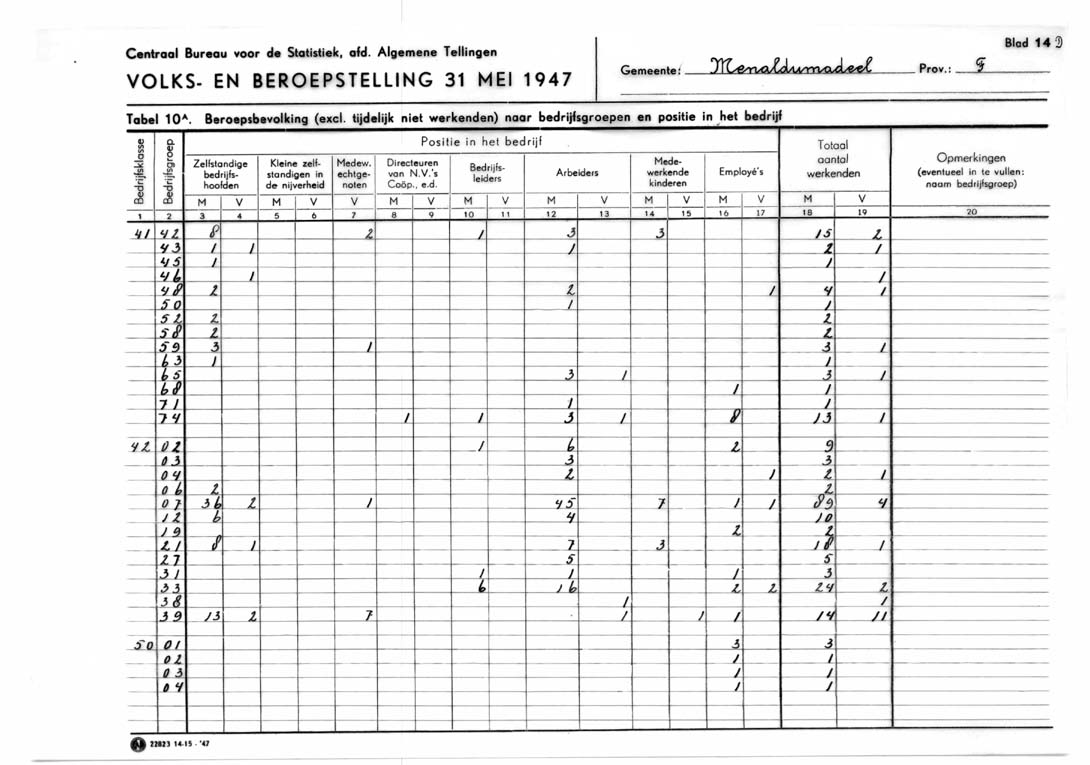 Centraal Bureau voor de Statistiek, afd. Algemene Tellingen
VOLKS- EN BEROEPSTELLING 31 MEI 1947
Gemeente: Menaldumadeel Prov.: F
Blad 14 D
Tabel 10A. Beroepsbevolking (excl. tijdelijk niet werkenden) naar bedrijfsgroepen en positie in het bedrijf
Bedrijfsklasse
Bedrijfsgroep
Positie in het bedrijf
Zelfstandige bedrijfs-hoofden
Kleine zelf-standigen in de nijverheid
Medew. echtge-noten
Directeuren van N.V.'s Coöp., e.d.
Bedrijfs-leiders
Arbeiders
Mede-werkende kinderen
Employé's
Totaal aantal werkenden
Opmerkingen (eventueel in te vullen: naam bedrijfsgroep)
M V M V V M V M V M V M V M V M V
1 2 3 4 5 6 7 8 9 10 11 12 13 14 15 16 17 18 19 20
41 42 8 2 1 3 3 15 2
43 1 1 1 2 1
45 1 1
46 1 1
48 2 2 1 4 1
50 1 1
52 2 2
58 2 2
59 3 1 3 1
63 1 1
65 3 1 3 1
68 1 1
71 1 1
74 1 1 3 1 8 13 1
42 02 1 6 2 9
03 3 3
04 2 1 2 1
06 2 2
07 36 2 1 45 7 1 1 89 4
12 6 4 10
19 2 2
21 8 1 7 3 18 1
27 5 5
31 1 1 1 3
33 6 16 2 2 24 2
38 1 1
39 13 2 7 1 1 1 14 11
50 01 3 3
02 1 1
03 1 1
04 1 1
22823 14-15 - '47